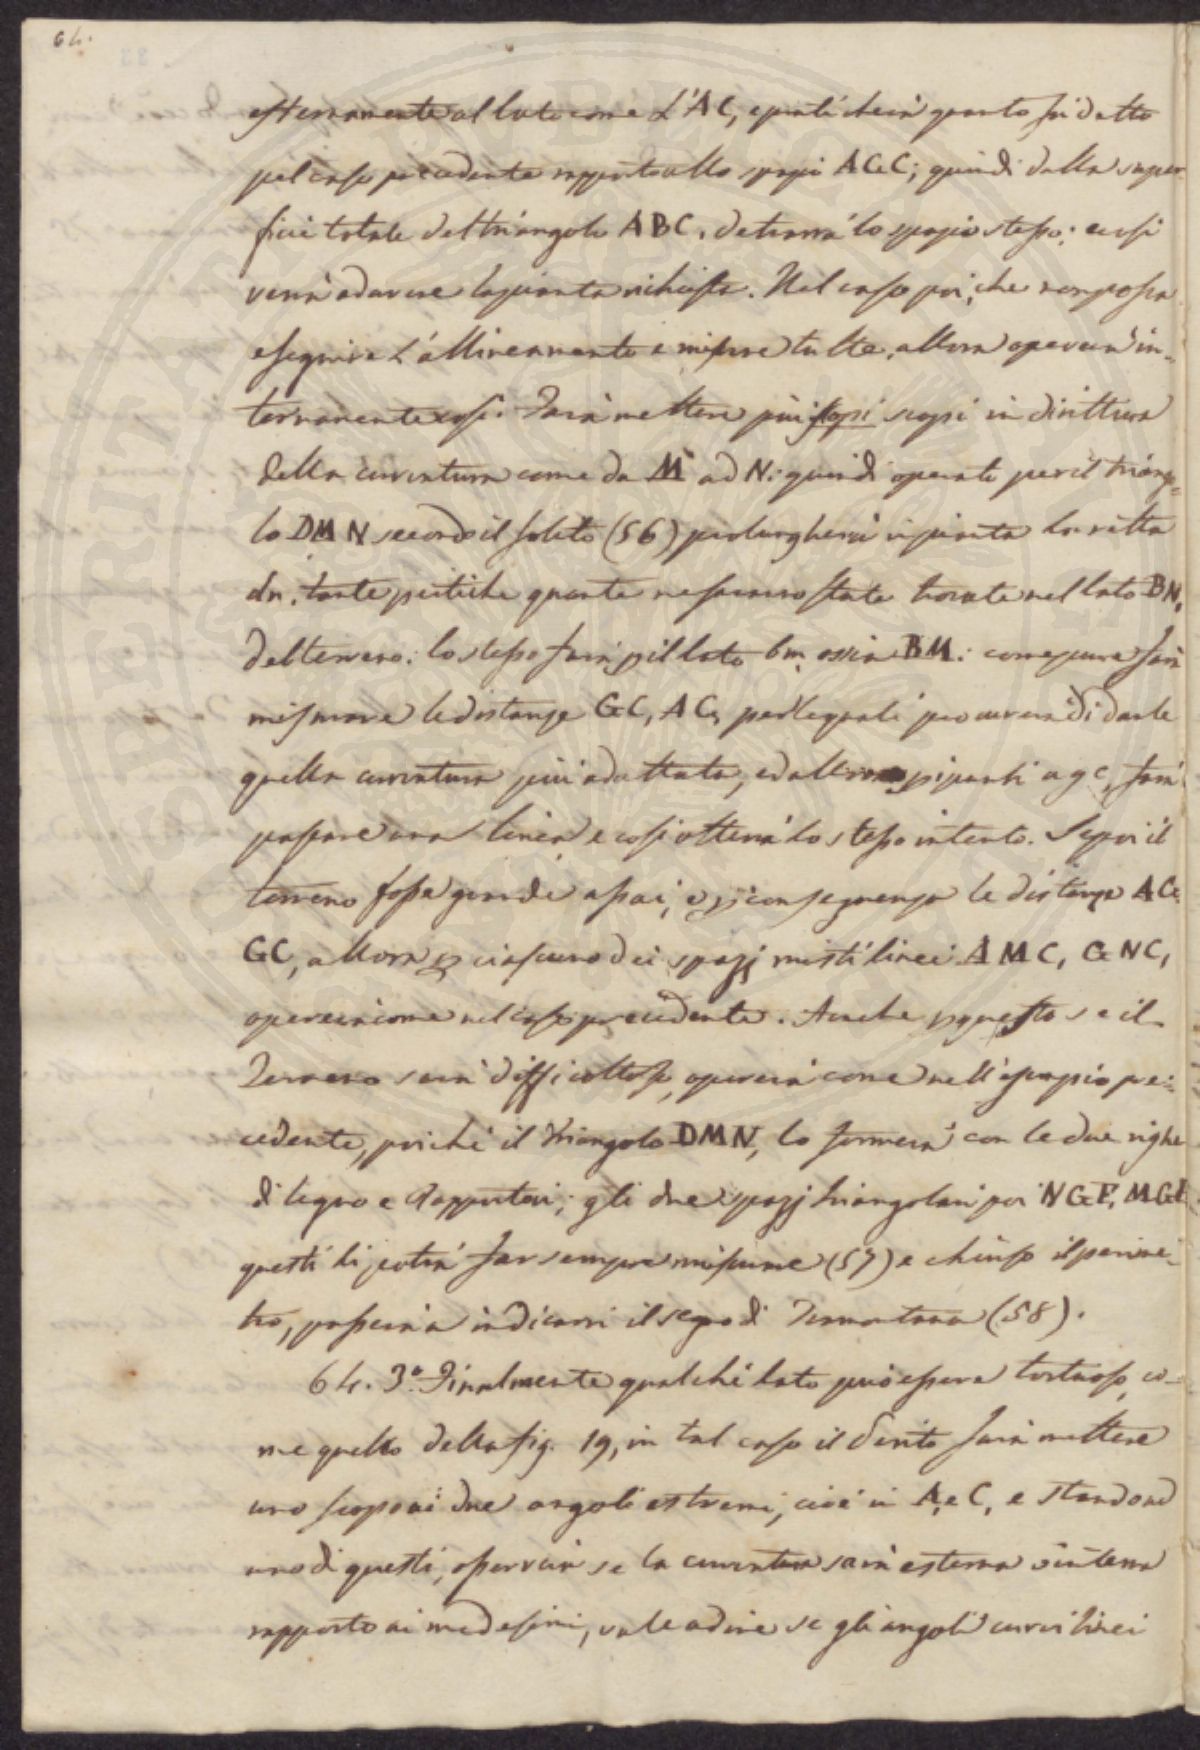 64.
esternamente al lato come L'AC, e praticherà quanto fu detto
pel caso precedente rapporto allo spazio AGC; quindi dalla super-
ficie totale del triangolo ABC, detrarrà lo spazio stesso; e così
verrà ad avere la pianta richiesta. Nel caso poi, che non possa
eseguire L'allineamento e misure tutte, allora opererà in-
ternamente così. Farà mettere più scopi in dirittura
della curvatura come da M ad N: quindi operato per il triango-
lo DMN secondo il solito (56) prolungherà in pianta la retta
dn, tante pertiche quante ne saranno state trovate nel lato BN,
del terreno: lo stesso farà pel lato bm ossia BM: come pure farà
misurare le distanze GC, AC, per le quali procurerà di darle
quella curvatura più adattata, ed punti a g c, farà
passare una linea e così otterrà lo stesso intento. Se poi il
terreno fosse grande assai, e p conseguenza le distanze AC,
GC, allora p ciascuno dei spazj mistilinei AMC, GNC,
opererà come nel caso precedente. Anche p questo se il
Terreno sarà difficoltoso, opererà come nell'esempio pre-
cedente, poichè il triangolo DMN, lo formerà con le due righe
di legno e Rapportori; gli due spazj triangolari poi NGF, MGI
questi li potrà far sempre misurare (57) e chiuso il perime-
tro, passerà a indicarvi il segno di Tramontana (58).
64. 3.° Finalmente qualche lato può essere tortuoso, co-
me quello della fig. 19, in tal caso il Perito farà mettere
uno scopo ai due angoli estremi, cioè in A, e C, e stando ad
uno di questi, osserverà se la curvatura sarà esterna o interna
rapporto ai medesimi, vale a dire se gli angoli curvilinei